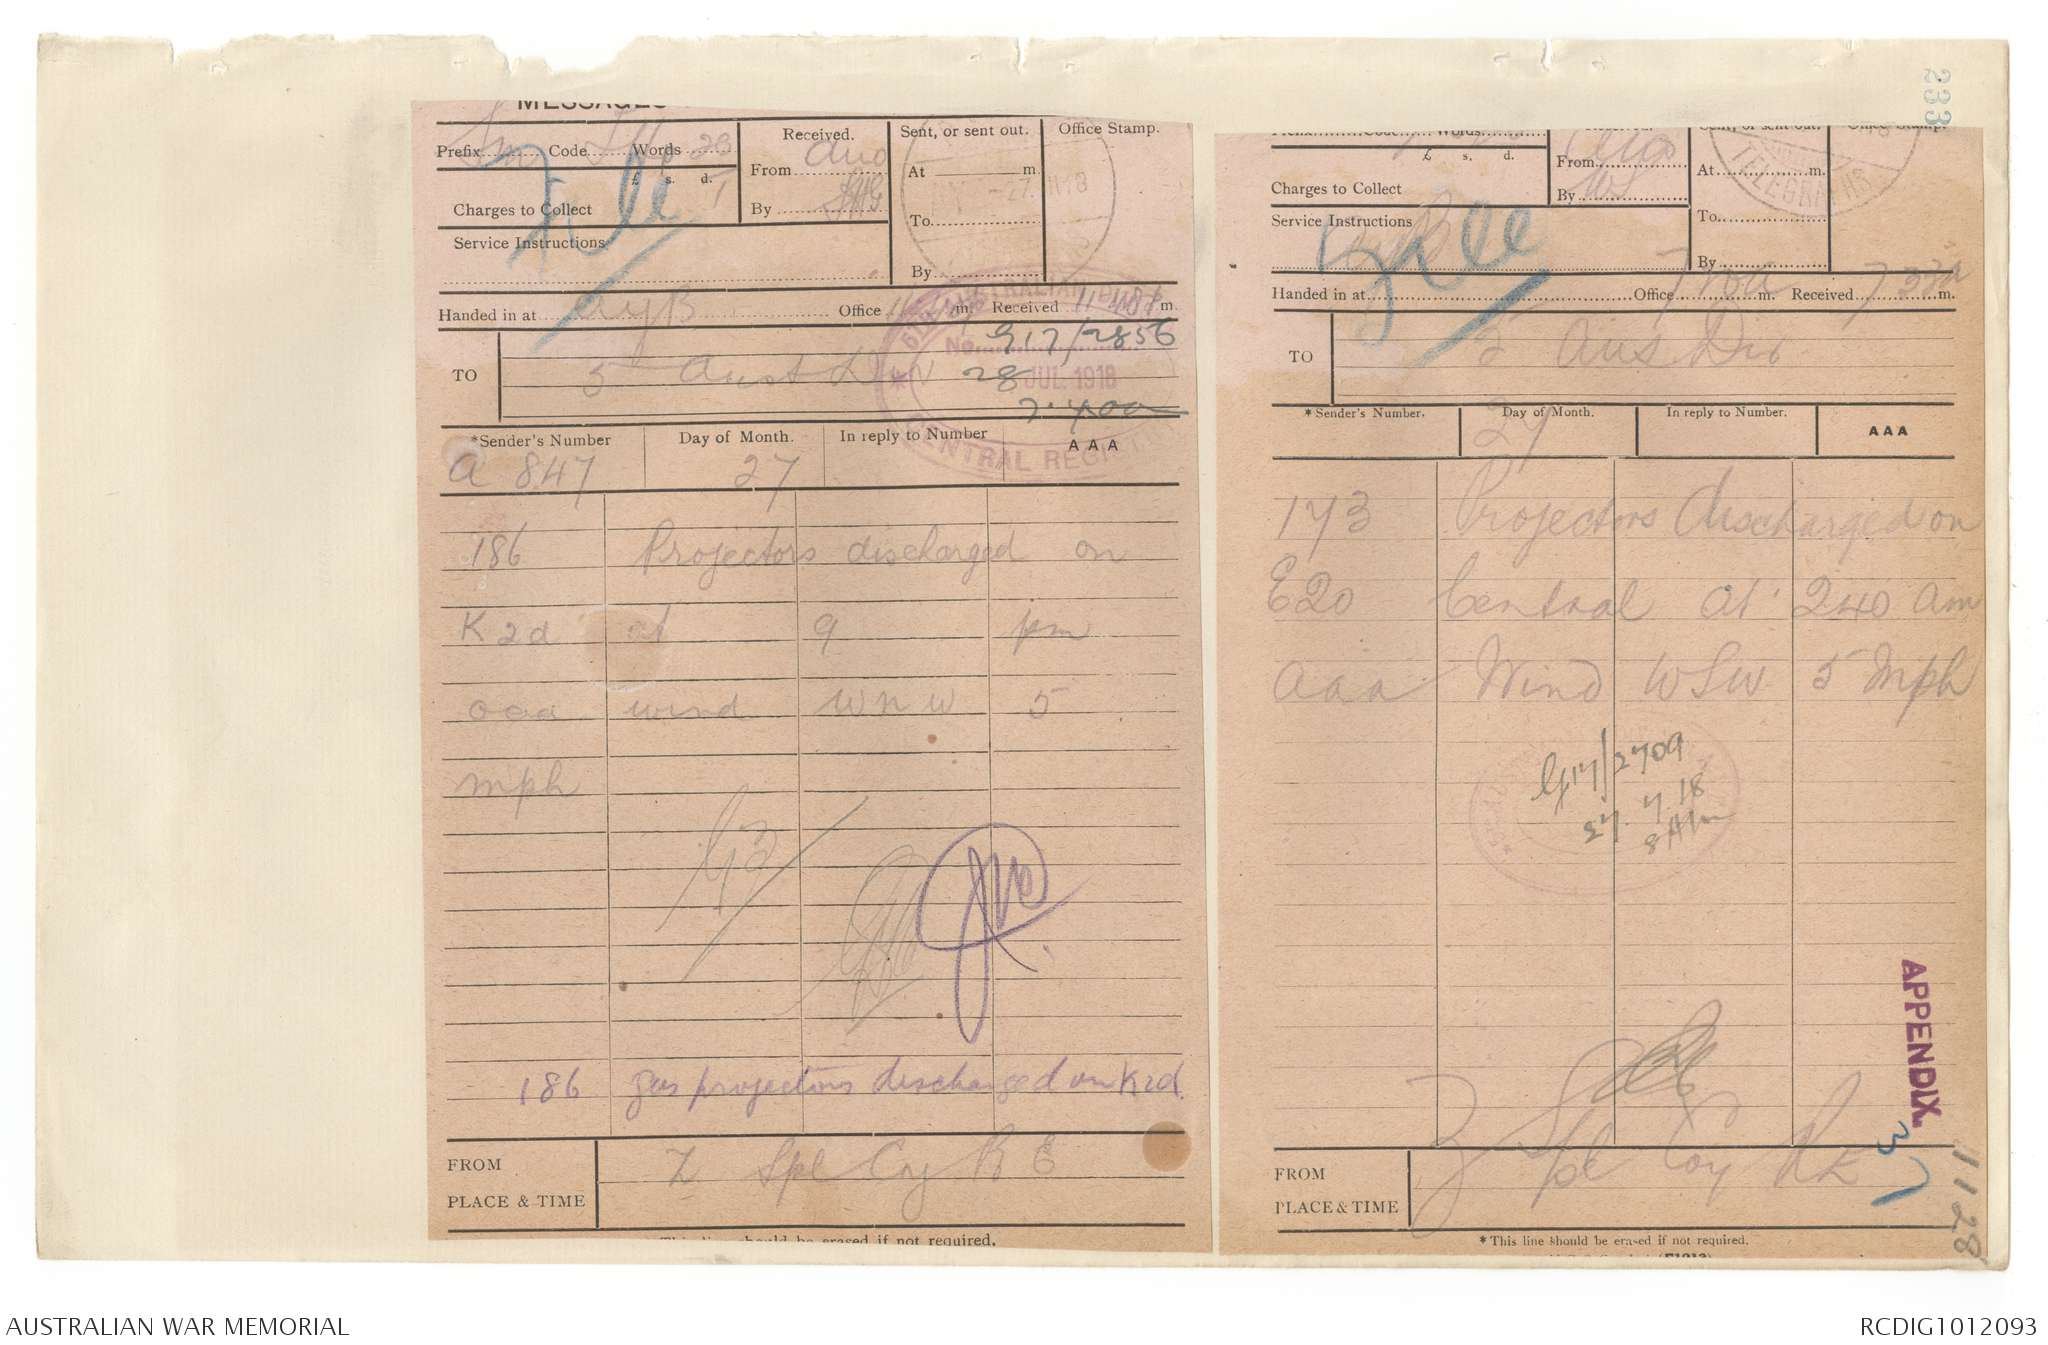 233
MESSAGES
Prefix Sm Code Words 20
£ s. d.
Charges to Collect
Service Instructions
File
Received.
From
By
Sent, or sent out.
At m.
To
By
Office Stamp.
27 VII 18
Handed in at Office m. Received m.
G17/2856
TO 5 Aust Div 28 JUL 1918
CENTRAL REGISTRY
*Sender's Number Day of Month. In reply to Number AAA
A 847 27
186 Projectors discharged on
K2d at 9 pm
aaa wind WNW 5
mph
186 gas projectors discharged on K2d.
FROM
PLACE & TIME
Z Spl Coy R E
*This line should be erased if not required.
Prefix Code Words
£ s. d.
Charges to Collect
Service Instructions
File
From
By
Sent, or sent out.
At m.
To
By
Office Stamp.
TELEGRAPHS
Handed in at Office m. Received m.
TO 5 Aus Div
*Sender's Number. Day of Month. In reply to Number. AAA
27
173 Projectors discharged on
E20 Central at 240 am
aaa Wind WSW 5 mph
G17/2709
27.7.18
8 Am
FROM
PLACE & TIME
Z Spl Coy RE
*This line should be erased if not required.
APPENDIX.
37
1128
AUSTRALIAN WAR MEMORIAL
RCDIG1012093